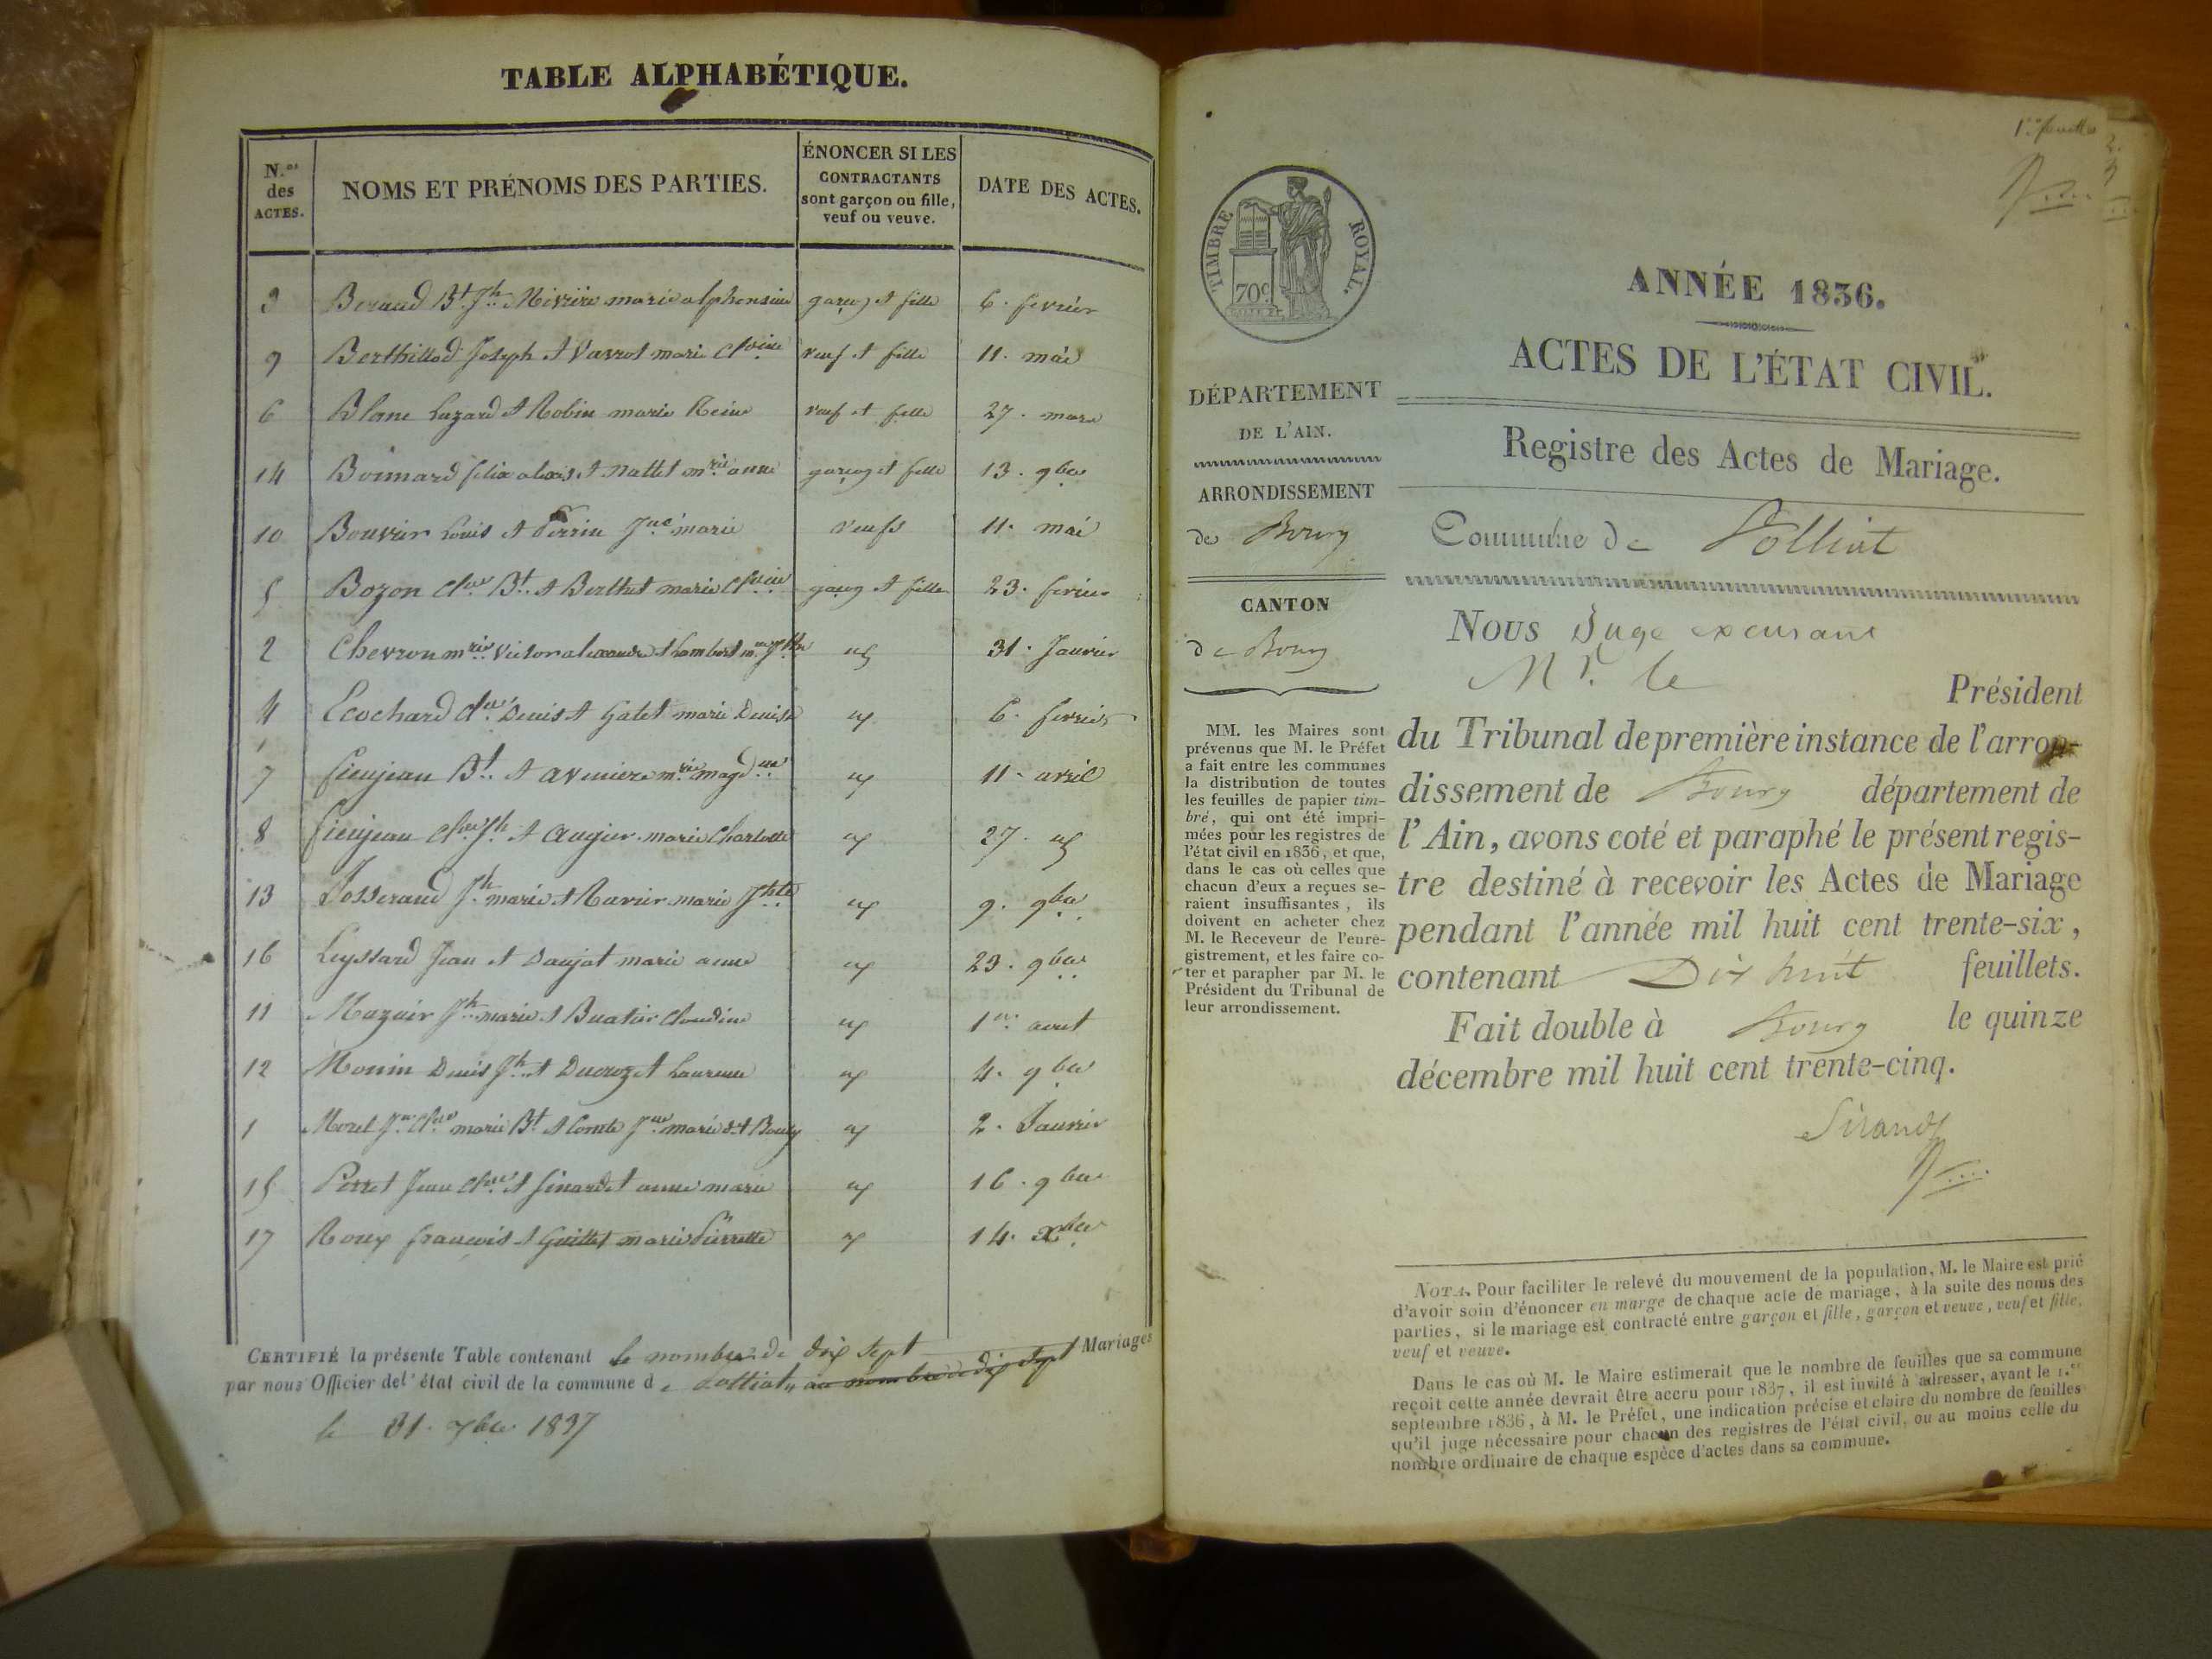 TABLE ALPHABÉTIQUE.
N.os des ACTES.
NOMS ET PRÉNOMS DES PARTIES.
ÉNONCER SI LES CONTRACTANTS sont garçon ou fille, veuf ou veuve.
DATE DES ACTES.
3 Beraud Bt. Jh. marie alphonsine garçon et fille 6. fevrier
9 Berthillod Joseph et Varrot marie veuf et fille 11. mai
6 Blanc Lazard et Robin marie Reine veuf et fille 27. mars
14 Boinnard felix alexis et Nallet mrie anne garçon et fille 13. 9bre
10 Bouvier Louis et Perrin Jne marie veufs 11. mai
5 Bozon Cde Bt. et Berthet marie garçon et fille 23. fevrier
2 Chevron mrie Victor alexandre et Lambert 31. Janvier
4 Ecochard Cde Denis et Galet marie Denise 6. fevrier
7 fieujean Bt. et aveniere mrie magdne 11. avril
8 fieujean Jh. et augier marie Charlotte 27.
13 Josserand Jh. marie et Ravier marie Jhte 9. 9bre
16 Leyssard Jean et Daujat marie anne 23. 9bre
11 Mazuir Jh. marie et Buatier Claudine 1er aout
12 Monin Denis Jh. et Ducrozet Laurence 4. 9bre
1 Morel Jn Cde marie Bt. et Comte Jne marie 2. Janvier
15 Perret Jean Cde et finardet anne marie 16. 9bre
17 Roux francois et Guillet marie Pierrette 14. Xbre
CERTIFIÉ la présente Table contenant le nombre de dix sept Mariages
par nous Officier de l'état civil de la commune de Polliat, au nombre de dix sept
le 31. 1837
1er feuillet
TIMBRE ROYAL.
70c
ANNÉE 1836.
ACTES DE L'ÉTAT CIVIL.
Registre des Actes de Mariage.
DÉPARTEMENT
DE L'AIN.
ARRONDISSEMENT
de Bourg
CANTON
de Bourg
MM. les Maires sont
prévenus que M. le Préfet
a fait entre les communes
la distribution de toutes
les feuilles de papier tim-
bré, qui ont été impri-
mées pour les registres de
l'état civil en 1836, et que,
dans le cas où celles que
chacun d'eux a reçues se-
raient insuffisantes, ils
doivent en acheter chez
M. le Receveur de l'enre-
gistrement, et les faire co-
ter et parapher par M. le
Président du Tribunal de
leur arrondissement.
Commune de Polliat
NOUS Juge excusant
Mr. le Président
du Tribunal de première instance de l'arron-
dissement de Bourg département de
l'Ain, avons coté et paraphé le présent regis-
tre destiné à recevoir les Actes de Mariage
pendant l'année mil huit cent trente-six,
contenant Dix huit feuillets.
Fait double à Bourg le quinze
décembre mil huit cent trente-cinq.
Sirand
NOTA. Pour faciliter le relevé du mouvement de la population, M. le Maire est prié
d'avoir soin d'énoncer en marge de chaque acte de mariage, à la suite des noms des
parties, si le mariage est contracté entre garçon et fille, garçon et veuve, veuf et fille,
veuf et veuve.
Dans le cas où M. le Maire estimerait que le nombre de feuilles que sa commune
reçoit cette année devrait être accru pour 1837, il est invité à adresser, avant le 1.er
septembre 1836, à M. le Préfet, une indication précise et claire du nombre de feuilles
qu'il juge nécessaire pour chacun des registres de l'état civil, ou au moins celle du
nombre ordinaire de chaque espèce d'actes dans sa commune.